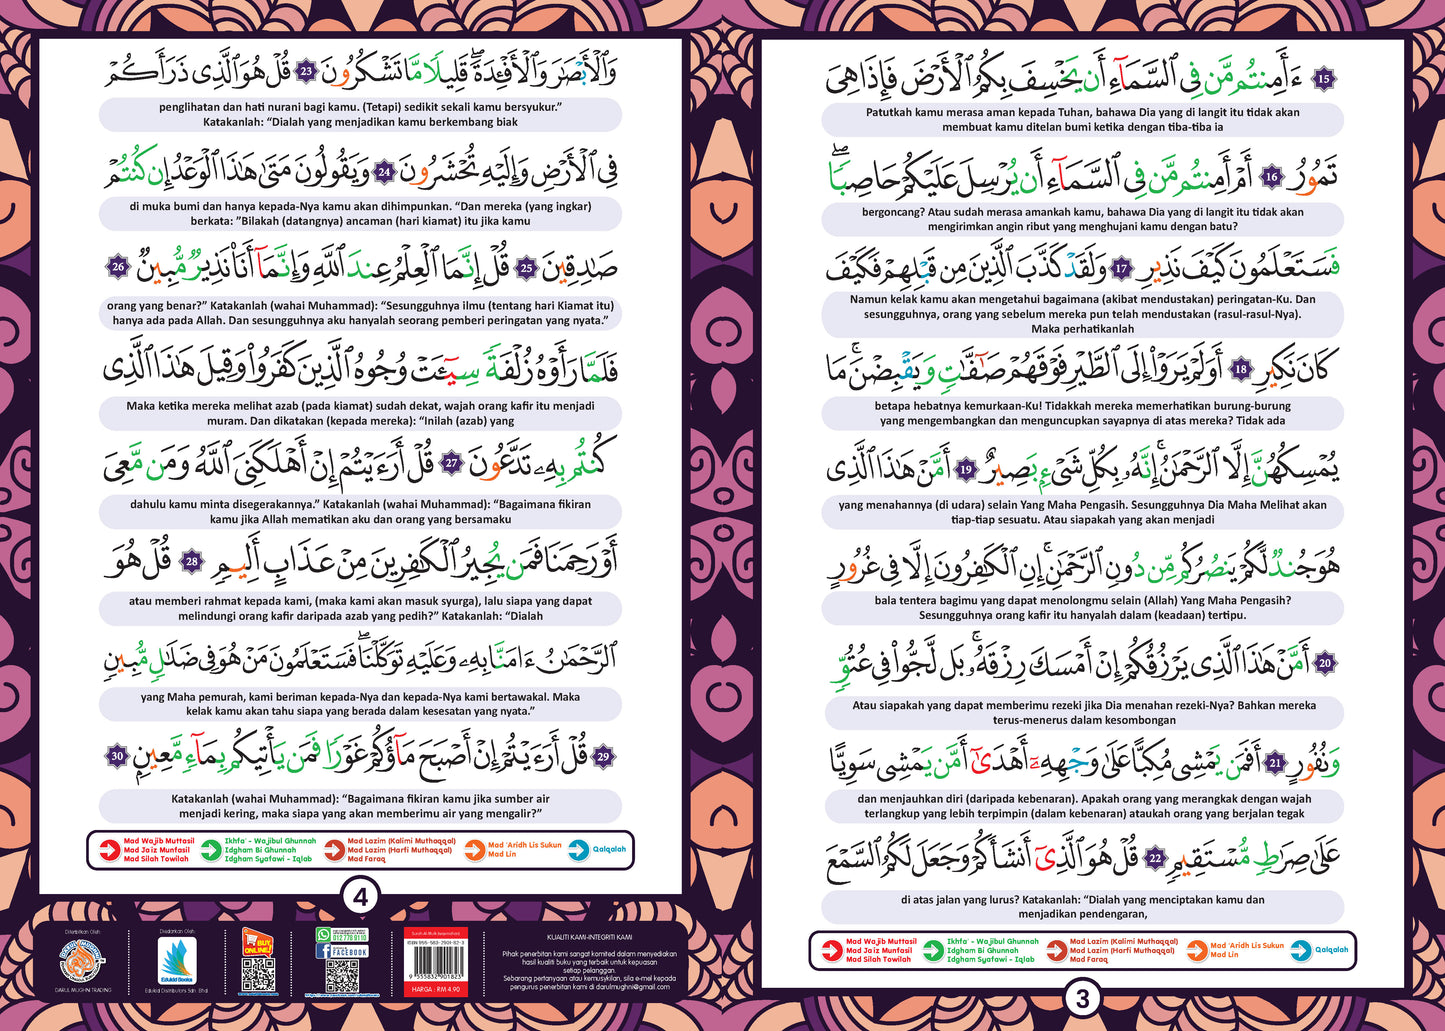 15 ءَأَمِنتُم مَّن فِى ٱلسَّمَآءِ أَن يَخْسِفَ بِكُمُ ٱلْأَرْضَ فَإِذَا هِىَ
Patutkah kamu merasa aman kepada Tuhan, bahawa Dia yang di langit itu tidak akan
membuat kamu ditelan bumi ketika dengan tiba-tiba ia
تَمُورُ 16 أَمْ أَمِنتُم مَّن فِى ٱلسَّمَآءِ أَن يُرْسِلَ عَلَيْكُمْ حَاصِبًاۖ
bergoncang? Atau sudah merasa amankah kamu, bahawa Dia yang di langit itu tidak akan
mengirimkan angin ribut yang menghujani kamu dengan batu?
فَسَتَعْلَمُونَ كَيْفَ نَذِيرِ 17 وَلَقَدْ كَذَّبَ ٱلَّذِينَ مِن قَبْلِهِمْ فَكَيْفَ
Namun kelak kamu akan mengetahui bagaimana (akibat mendustakan) peringatan-Ku. Dan
sesungguhnya, orang yang sebelum mereka pun telah mendustakan (rasul-rasul-Nya).
Maka perhatikanlah
كَانَ نَكِيرِ 18 أَوَلَمْ يَرَوْا۟ إِلَى ٱلطَّيْرِ فَوْقَهُمْ صَٰٓفَّٰتٍ وَيَقْبِضْنَۚ مَا
betapa hebatnya kemurkaan-Ku! Tidakkah mereka memerhatikan burung-burung
yang mengembangkan dan menguncupkan sayapnya di atas mereka? Tidak ada
يُمْسِكُهُنَّ إِلَّا ٱلرَّحْمَٰنُۚ إِنَّهُۥ بِكُلِّ شَىْءٍۭ بَصِيرٌ 19 أَمَّنْ هَٰذَا ٱلَّذِى
yang menahannya (di udara) selain Yang Maha Pengasih. Sesungguhnya Dia Maha Melihat akan
tiap-tiap sesuatu. Atau siapakah yang akan menjadi
هُوَ جُندٌ لَّكُمْ يَنصُرُكُم مِّن دُونِ ٱلرَّحْمَٰنِۚ إِنِ ٱلْكَٰفِرُونَ إِلَّا فِى غُرُورٍ
bala tentera bagimu yang dapat menolongmu selain (Allah) Yang Maha Pengasih?
Sesungguhnya orang kafir itu hanyalah dalam (keadaan) tertipu.
20 أَمَّنْ هَٰذَا ٱلَّذِى يَرْزُقُكُمْ إِنْ أَمْسَكَ رِزْقَهُۥۚ بَل لَّجُّوا۟ فِى عُتُوٍّ
Atau siapakah yang dapat memberimu rezeki jika Dia menahan rezeki-Nya? Bahkan mereka
terus-menerus dalam kesombongan
وَنُفُورٍ 21 أَفَمَن يَمْشِى مُكِبًّا عَلَىٰ وَجْهِهِۦٓ أَهْدَىٰٓ أَمَّن يَمْشِى سَوِيًّا
dan menjauhkan diri (daripada kebenaran). Apakah orang yang merangkak dengan wajah
terlangkup yang lebih terpimpin (dalam kebenaran) ataukah orang yang berjalan tegak
عَلَىٰ صِرَٰطٍ مُّسْتَقِيمٍ 22 قُلْ هُوَ ٱلَّذِىٓ أَنشَأَكُمْ وَجَعَلَ لَكُمُ ٱلسَّمْعَ
di atas jalan yang lurus? Katakanlah: “Dialah yang menciptakan kamu dan
menjadikan pendengaran,
Mad Wajib Muttasil
Mad Ja'iz Munfasil
Mad Silah Towilah
Ikhfa' - Wajibul Ghunnah
Idgham Bi Ghunnah
Idgham Syafawi - Iqlab
Mad Lazim (Kalimi Muthaqqal)
Mad Lazim (Harfi Muthaqqal)
Mad Faraq
Mad 'Aridh Lis Sukun
Mad Lin
Qalqalah
3
وَٱلْأَبْصَٰرَ وَٱلْأَفْـِٔدَةَۖ قَلِيلًا مَّا تَشْكُرُونَ 23 قُلْ هُوَ ٱلَّذِى ذَرَأَكُمْ
penglihatan dan hati nurani bagi kamu. (Tetapi) sedikit sekali kamu bersyukur.”
Katakanlah: “Dialah yang menjadikan kamu berkembang biak
فِى ٱلْأَرْضِ وَإِلَيْهِ تُحْشَرُونَ 24 وَيَقُولُونَ مَتَىٰ هَٰذَا ٱلْوَعْدُ إِن كُنتُمْ
di muka bumi dan hanya kepada-Nya kamu akan dihimpunkan. “Dan mereka (yang ingkar)
berkata: ”Bilakah (datangnya) ancaman (hari kiamat) itu jika kamu
صَٰدِقِينَ 25 قُلْ إِنَّمَا ٱلْعِلْمُ عِندَ ٱللَّهِ وَإِنَّمَآ أَنَا۠ نَذِيرٌ مُّبِينٌ 26
orang yang benar?” Katakanlah (wahai Muhammad): “Sesungguhnya ilmu (tentang hari Kiamat itu)
hanya ada pada Allah. Dan sesungguhnya aku hanyalah seorang pemberi peringatan yang nyata.”
فَلَمَّا رَأَوْهُ زُلْفَةً سِيٓـَٔتْ وُجُوهُ ٱلَّذِينَ كَفَرُوا۟ وَقِيلَ هَٰذَا ٱلَّذِى
Maka ketika mereka melihat azab (pada kiamat) sudah dekat, wajah orang kafir itu menjadi
muram. Dan dikatakan (kepada mereka): “Inilah (azab) yang
كُنتُم بِهِۦ تَدَّعُونَ 27 قُلْ أَرَءَيْتُمْ إِنْ أَهْلَكَنِىَ ٱللَّهُ وَمَن مَّعِىَ
dahulu kamu minta disegerakannya.” Katakanlah (wahai Muhammad): “Bagaimana fikiran
kamu jika Allah mematikan aku dan orang yang bersamaku
أَوْ رَحِمَنَا فَمَن يُجِيرُ ٱلْكَٰفِرِينَ مِنْ عَذَابٍ أَلِيمٍ 28 قُلْ هُوَ
atau memberi rahmat kepada kami, (maka kami akan masuk syurga), lalu siapa yang dapat
melindungi orang kafir daripada azab yang pedih?” Katakanlah: “Dialah
ٱلرَّحْمَٰنُ ءَامَنَّا بِهِۦ وَعَلَيْهِ تَوَكَّلْنَاۖ فَسَتَعْلَمُونَ مَنْ هُوَ فِى ضَلَٰلٍ مُّبِينٍ
yang Maha pemurah, kami beriman kepada-Nya dan kepada-Nya kami bertawakal. Maka
kelak kamu akan tahu siapa yang berada dalam kesesatan yang nyata.”
29 قُلْ أَرَءَيْتُمْ إِنْ أَصْبَحَ مَآؤُكُمْ غَوْرًا فَمَن يَأْتِيكُم بِمَآءٍ مَّعِينٍ 30
Katakanlah (wahai Muhammad): “Bagaimana fikiran kamu jika sumber air
menjadi kering, maka siapa yang akan memberimu air yang mengalir?”
Mad Wajib Muttasil
Mad Ja'iz Munfasil
Mad Silah Towilah
Ikhfa' - Wajibul Ghunnah
Idgham Bi Ghunnah
Idgham Syafawi - Iqlab
Mad Lazim (Kalimi Muthaqqal)
Mad Lazim (Harfi Muthaqqal)
Mad Faraq
Mad 'Aridh Lis Sukun
Mad Lin
Qalqalah
4
Diterbitkan Oleh:
DARUL MUGHNI
DARUL MUGHNI TRADING
Diedarkan Oleh:
Edukid Books
Edukid Distributors Sdn. Bhd
BUY ONLINE!
012 778 9110
FACEBOOK
ISBN 955-583-2901-82-3
9 555832 901823
HARGA : RM 4.90
KUALITI KAMI-INTEGRITI KAMI
Pihak penerbitan kami sangat komited dalam menyediakan
hasil kualiti buku yang terbaik untuk kepuasan
setiap pelanggan.
Sebarang pertanyaan atau kemusykilan, sila e-mel kepada
pengurus penerbitan kami di darulmughni@gmail.com